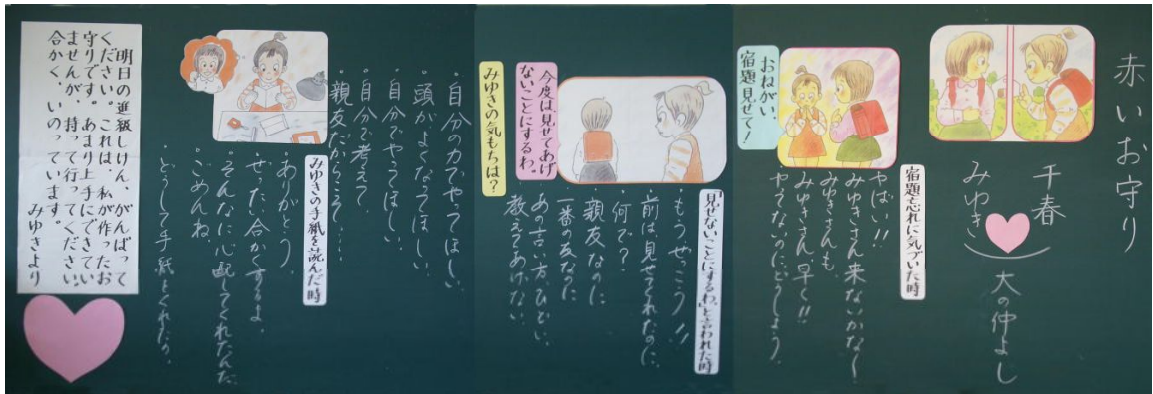 赤いお守り
千春
みゆき
大の仲よし
おねがい、
宿題見せて！
宿題忘れに気づいた時
やばい!!
みゆきさん来ないかな〜
みゆきさんも
みゆきさん早く!!
やってないのにどうしよう。
今度は「見せてあげ
ないことにするわ。
みゆきの気もちは？
「見せないことにするわ。」と言われた時
・もうぜっこう!!
・前は見せてくれたのに、
何で？
・親友なのに
・一番の友なのに
・あの言い方、ひどい。
・教えてあげない
・自分の力でやってほしい。
・頭がよくなってほしい。
・自分でやってほしい。
・自分で考えて、
・親友だからこそ…。
みゆきの手紙を読んだ時
・ありがとう。
・ぜったい合かくするよ。
・そんなに心配してくれたんだ
・ごめんね。
・どうして手紙をくれたの。
明日の進級しけん、がんばって
ください。これは、私が作ったお
守りです。あまり上手にできてい
ませんが、持って行ってください。
合かく、いのっています。
みゆきより